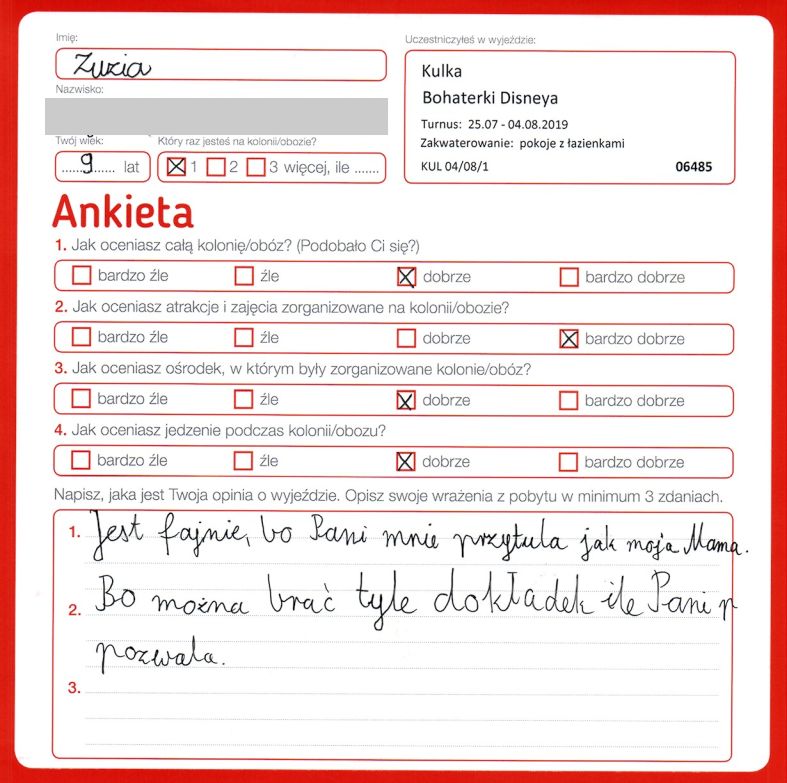 Imię:
Zuzia
Uczestniczyłeś w wyjeździe:
Kulka
Bohaterki Disneya
Turnus: 25.07 - 04.08.2019
Zakwaterowanie: pokoje z łazienkami
KUL 04/08/1 06485
Nazwisko:
Twój wiek: Który raz jesteś na kolonii/obozie?
9 lat 1 2 3 więcej, ile .......
Ankieta
1. Jak oceniasz całą kolonię/obóz? (Podobało Ci się?)
bardzo źle źle dobrze bardzo dobrze
2. Jak oceniasz atrakcje i zajęcia zorganizowane na kolonii/obozie?
bardzo źle źle dobrze bardzo dobrze
3. Jak oceniasz ośrodek, w którym były zorganizowane kolonie/obóz?
bardzo źle źle dobrze bardzo dobrze
4. Jak oceniasz jedzenie podczas kolonii/obozu?
bardzo źle źle dobrze bardzo dobrze
Napisz, jaka jest Twoja opinia o wyjeździe. Opisz swoje wrażenia z pobytu w minimum 3 zdaniach.
1. Jest fajnie, bo Pani mnie przytula jak moja Mama.
2. Bo można brać tyle dokładek ile Pani p
pozwala.
3.